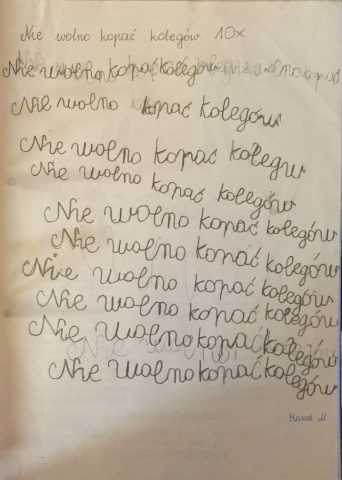 Nie wolno kopać kolegów 10x
Nie wolno kopać kolegów wolno kopać
Nie wolno kopać kolegów
Nie wolno kopać kolegu
Nie wolno kopać kolegów
Nie wolno kopać kolegów
Nie wolno kopać kolegów
Nie wolno kopać kolegów
Nie wolno kopać kolegów
Nie wolno kopać kolegów
Nie wolno kopać kolegów
M.